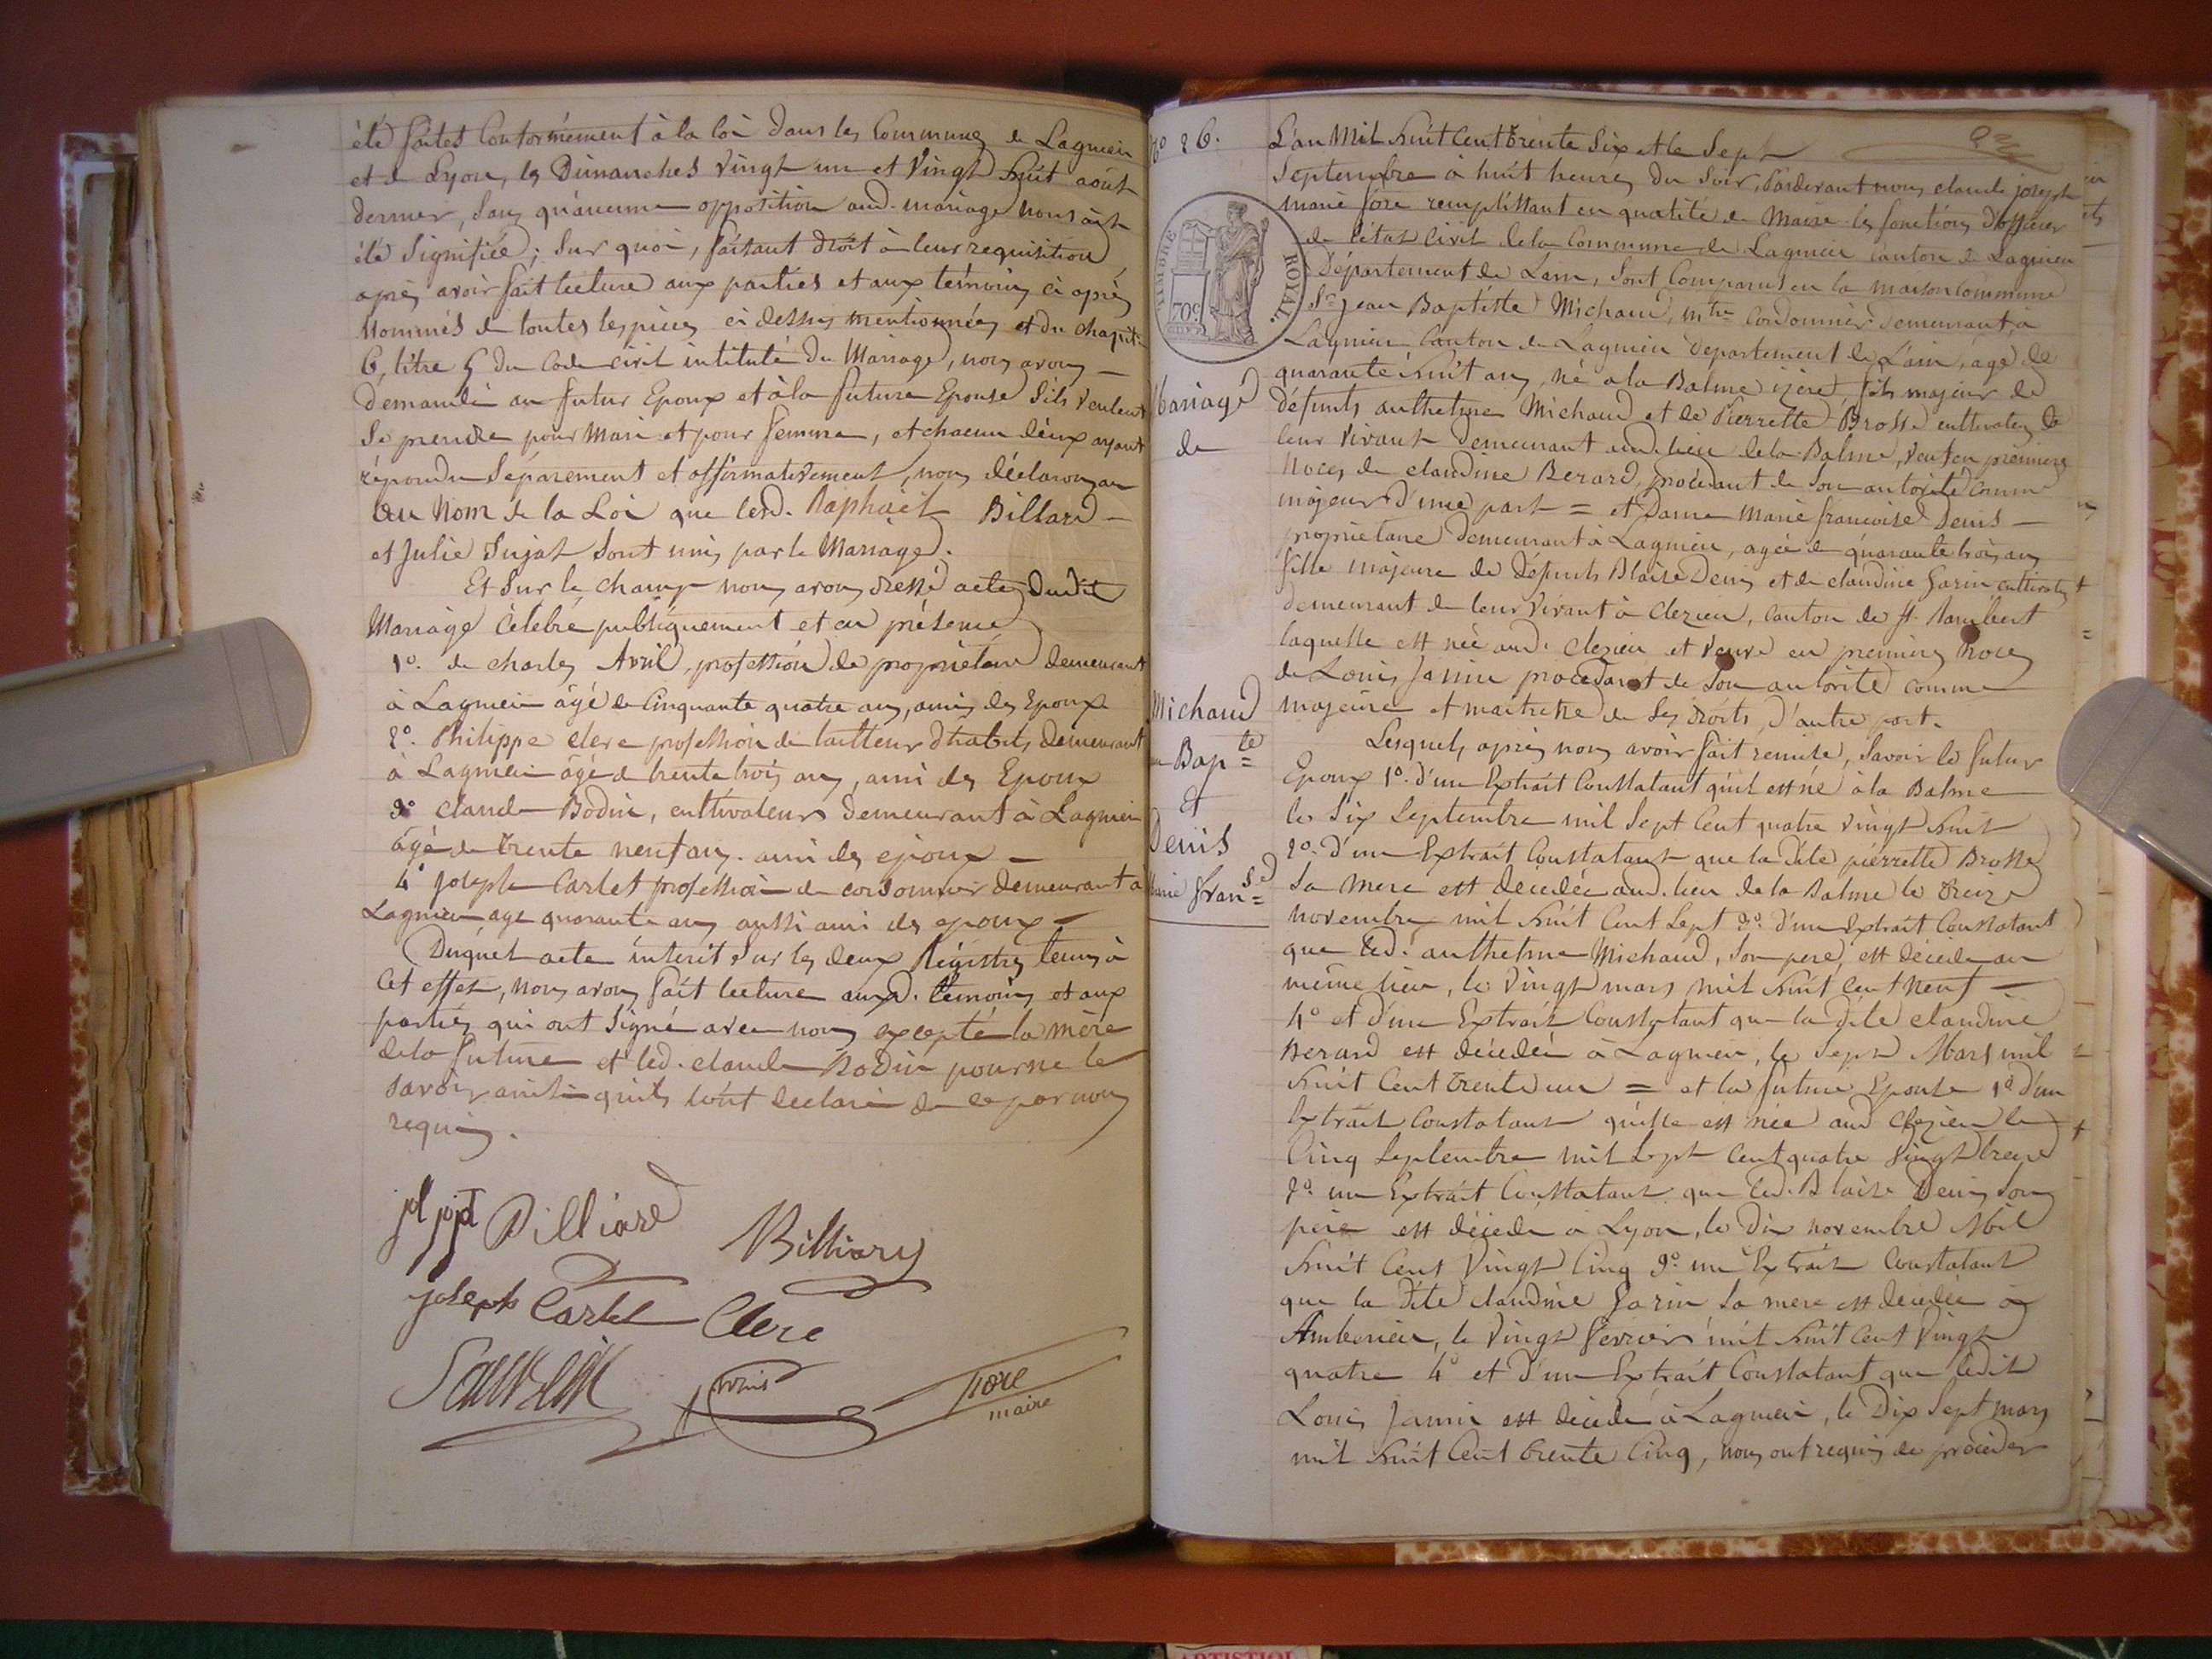 été faites Conformément à la loi dans les Communes de Lagnieu
et de Lyon, les Dimanches vingt un et vingt huit août
dernier, sans qu'aucune opposition aud. mariage nous ait
été signifiée; sur quoi, faisant droit à leur requisition
après avoir fait lecture aux parties et aux témoins ci après
Nommés de toutes les pièces ci dessus mentionnées et du chapit.
6, titre 5 du Code civil intitulé du Mariage, nous avons
demandé au futur Epoux et à la future Epouse s'ils veulent
se prendre pour Mari et pour femme, et chacun d'eux ayant
répondu séparement et affirmativement, nous déclarons au
au Nom de la Loi que lesd. Raphaël Billard
et Julie Sujat sont unis par le Mariage.
Et sur le champ nous avons dressé acte dudit
Mariage célébré publiquement et en présence
1º. de charles Avril, profession de propriétaire demeurant
à Lagnieu âgé de Cinquante quatre ans, ami des Epoux
2º. Philippe clerc profession de tailleur d'habits, demeurant
à Lagnieu âgé de trente trois ans, ami des Epoux
3º claude Bodin, cultivateur demeurant à Lagnieu
âgé de trente neuf ans. ami des epoux
4º joseph Carlet profession de cordonnier demeurant à
Lagnieu age quarante ans aussi ami des epoux
Duquel acte inscrit sur les deux Régistres tenus à
Cet effet, nous avons fait lecture auxd. témoins et aux
parties qui ont signé avec nous excepté la mère
de la future et led. claude Bodin pour ne le
savoir ainsi qu'ils l'ont declaré de ce par nous
requis.
Billiard
Billiard
joseph Carlet Clerc
fore
maire
Nº 26.
L'an Mil huit Cent trente Six et le Sept
Septembre à huit heures du soir, Pardevant nous claude joseph
marie fore remplissant en qualité de Maire les fonctions d'officier
de l'état Civil de la Commune de Lagnieu Canton de Lagnieu
Département de l'ain, sont Comparus en la maison commune
Sr. jean Baptiste Michaud, mtre Cordonnier demeurant à
Lagnieu Canton de Lagnieu Departement de L'ain, agé de
quarante huit ans, né à la Balme izère, fils majeur de
défunts anthelme Michaud et de Pierrette Brosse cultivateurs de
leur vivant demeurant aud. lieu de la Balme, veuf en premières
noces de claudine Berard, procédant de son autorité comme
majeur d'une part = et Dame marie françoise Denis
propriétaire demeurant à Lagnieu, agée de quarante trois ans
fille majeure de défunts Blaise Denis et de claudine Garin cultivateurs
demeurant de leur vivant à Clezieu, canton de St. Rambert
laquelle est née aud. Clezieu et veuve en premières noces
de Louis Janin procédant de son autorité comme
majeure et maitresse de ses droits, d'autre part.
Lesquels après nous avoir fait remise, savoir le futur
Epoux 1º. d'un Extrait Constatant qu'il est né à la Balme
le Six Septembre mil sept Cent quatre vingt huit
2º. d'un Extrait Constatant que la dite pierrette Brosse
sa mere est décédée aud. lieu de la Balme le treize
novembre mil huit Cent Sept 3º. d'un Extrait Constatant
que led. anthelme Michaud, son pere, est décédé au
même lieu, le vingt mars mil huit Cent Neuf
4º et d'un Extrait Constatant que la dite claudine
Berard est décédée à Lagnieu, le sept Mars mil
huit Cent trente un = et la future Epouse 1º d'un
Extrait Constatant qu'elle est née aud Clezieu le
Cinq Septembre mil Sept Cent quatre vingt treize
2º. un Extrait Constatant que led. Blaise Denis son
père est décédé à Lyon, le dix novembre Mil
huit Cent Vingt Cinq 3º. un Extrait Constatant
que la dite claudine Garin sa mere est décédée à
Ambérieu, le vingt février mil huit Cent vingt
quatre 4º et d'un Extrait Constatant que ledit
Louis Janin est décédé à Lagnieu, le Dix Sept mars
mil huit Cent trente Cinq, nous ont requis de procéder
TIMBRE ROYAL.
70c
Mariage
de
Michaud
Bapte
et
Denis
Marie franse